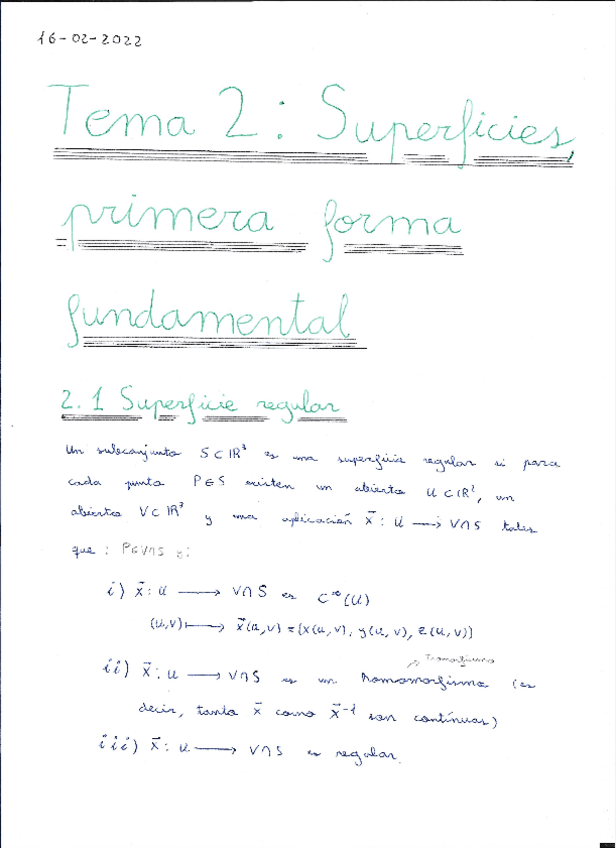 16-02-2022
Tema 2: Superficies,
primera forma
fundamental
2.1 Superficie regular
Un subconjunto S⊂ℝ³ es una superficie regular si para
cada punto P∈S existen un abierto U⊂ℝ², un
abierto V⊂ℝ³ y una aplicación x⃗: U ⟶ V∩S tales
que: P∈V∩S y:
i) x⃗: U ⟶ V∩S es C^∞(U)
(u,v) ⟼ x⃗(u,v) = (x(u,v), y(u,v), z(u,v))
ii) x⃗: U ⟶ V∩S es un homomorfismo (es
decir, tanto x⃗ como x⃗⁻¹ son continuas)
iii) x⃗: U ⟶ V∩S es regular.